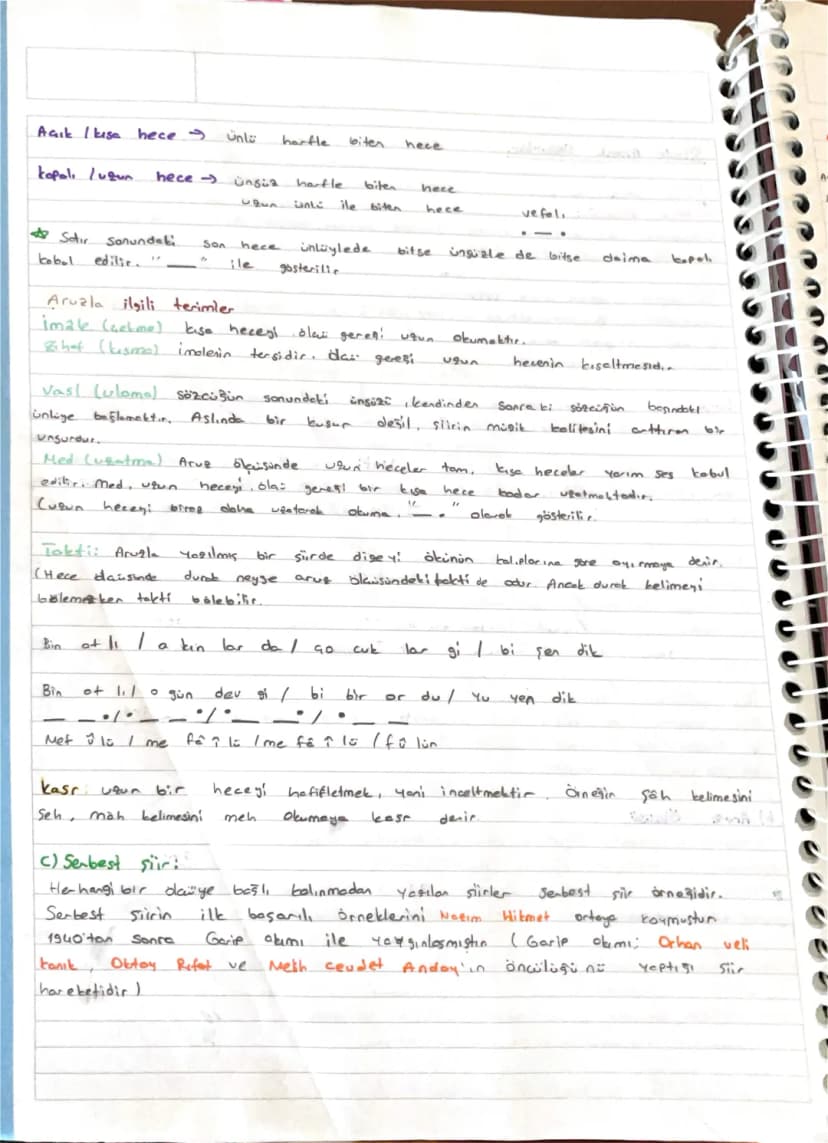 Açık / kısa hece → ünlü harfle biten hece
kapalı / uzun hece → ünsüz harfle biten hece
uzun ünlü ile biten hece vefalı
. — .
☆ Satır sonundaki son hece ünlüylede bitse ünsüzle de bitse daima kapalı
kabul edilir. " — " ile gösterilir
Aruzla ilgili terimler
İmale (çekme) kısa heceyi ölçü gereği uzun okumaktır.
Zihaf (kısma) imalenin tersidir. Ölçü gereği uzun hecenin kısaltmesidir.
Vasl (ulama) sözcüğün sonundaki ünsüzü, kendinden sonraki sözcüğün başındaki
ünlüye bağlamaktır. Aslında bir kusur değil, şiirin müzik kalitesini arttıran bir
unsurdur.
Med (uzatma) Aruz ölçüsünde uzun heceler tam, kısa heceler yarım ses kabul
edilir. Med, uzun heceyi, ölçü gereği bir kısa hece kadar uzatmaktadır.
(uzun heceyi biraz daha uzatarak okuma. "— ." olarak gösterilir.
Takti: Aruzla yazılmış bir şiirde dizeyi ölçünün kalıplarına göre ayırmaya denir.
(Hece ölçüsünde durak neyse aruz ölçüsündeki takti de odur. Ancak durak kelimeyi
bölemezken takti bölebilir.
Bin at lı / a kın lar da / ço cuk lar gi / bi şen dik
Bin at lı / o gün dev gi / bi bir or du / yu yen dik
— — . / . — — . / . — — . / . — —
Mef û lü / me fâ î lü / me fâ î lü / fû lün
Kasr: uzun bir heceyi hafifletmek, yani inceltmektir. Örneğin şâh kelimesini
şeh, mâh kelimesini meh okumaya kasr denir.
c) Serbest şiir:
Herhangi bir ölçüye bağlı kalınmadan yazılan şiirler serbest şiir örneğidir.
Serbest şiirin ilk başarılı örneklerini Nazım Hikmet ortaya koymuştur.
1940'tan sonra Garip akımı ile yaygınlaşmıştır. (Garip akımı; Orhan veli
kanık, Oktay Rıfat ve Melih cevdet Anday'ın öncülüğünü yaptığı şiir
hareketidir)